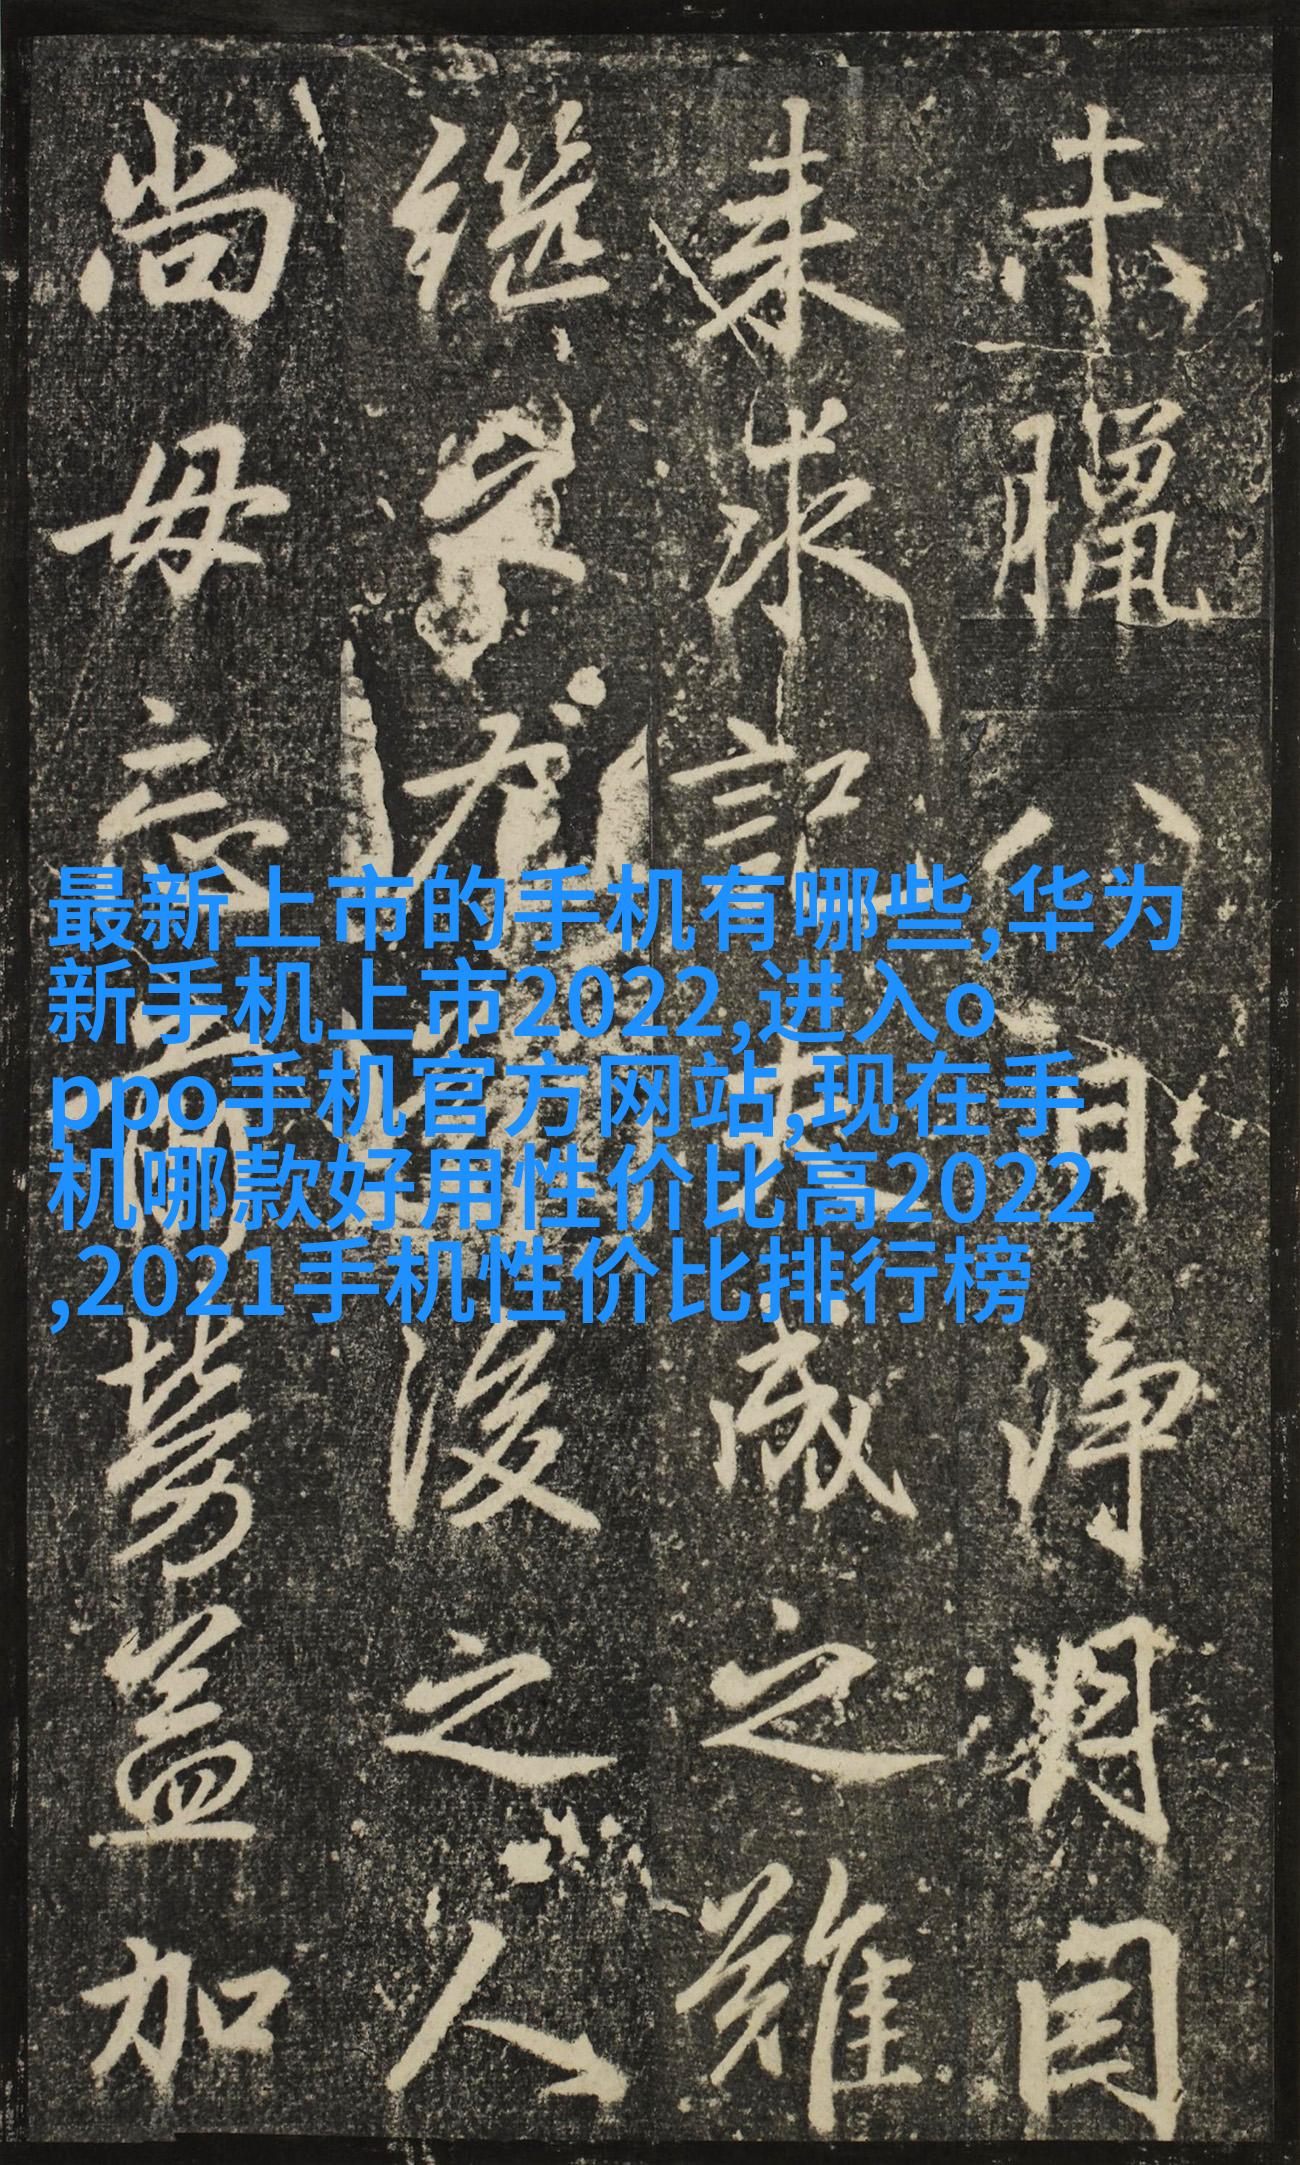 未臘八日淨
来求記歲之
繼後之人
尚毋忘而益加
最新上市的手机有哪些,华为
新手机上市2022,进入o
ppo手机官方网站,现在手
机哪款好用性价比高2022
,2021手机性价比排行榜